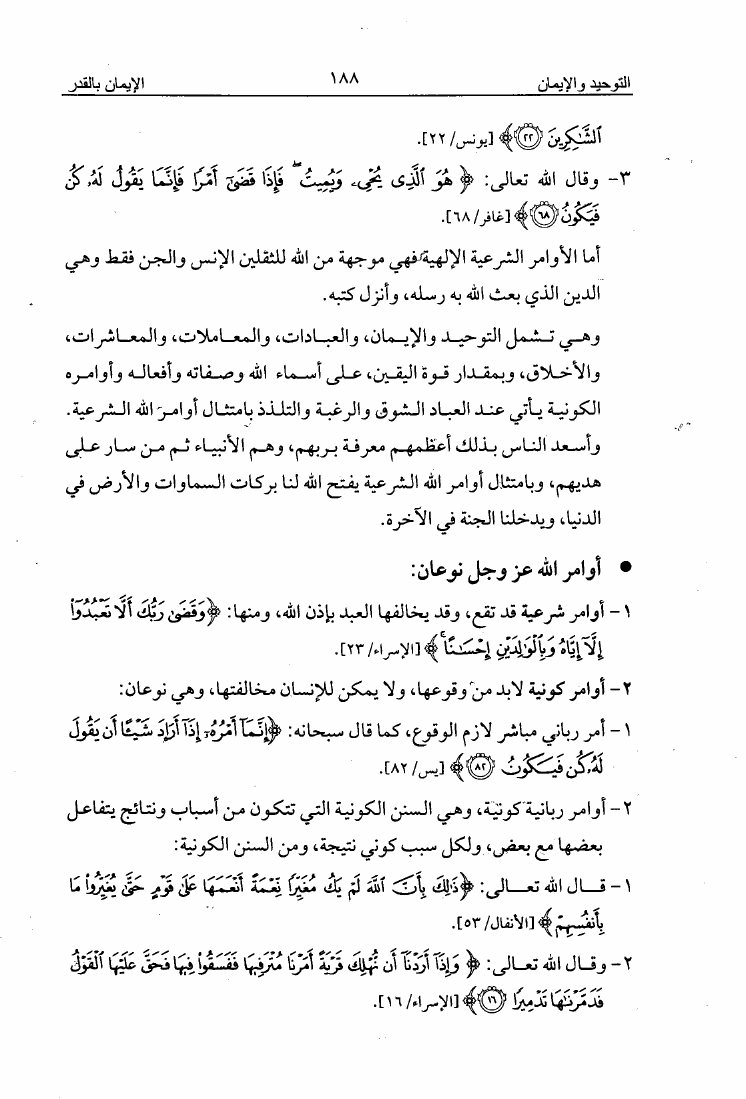 التوحيد والإيمان ١٨٨ الإيمان بالقدر
ٱلشَّٰكِرِينَ ﴿٢٢﴾ [يونس/ ٢٢].
٣- وقال الله تعالى: ﴿ هُوَ ٱلَّذِى يُحْىِۦ وَيُمِيتُ ۖ فَإِذَا قَضَىٰٓ أَمْرًا فَإِنَّمَا يَقُولُ لَهُۥ كُن
فَيَكُونُ ﴿٦٨﴾ [غافر/ ٦٨].
أما الأوامر الشرعية الإلهية فهي موجهة من الله للثقلين الإنس والجن فقط وهي
الدين الذي بعث الله به رسله، وأنزل كتبه.
وهي تشمل التوحيد والإيمان، والعبادات، والمعاملات، والمعاشرات،
والأخلاق، وبمقدار قوة اليقين، على أسماء الله وصفاته وأفعاله وأوامره
الكونية يأتي عند العباد الشوق والرغبة والتلذذ بامتثال أوامر الله الشرعية.
وأسعد الناس بذلك أعظمهم معرفة بربهم، وهم الأنبياء ثم من سار على
هديهم، وبامتثال أوامر الله الشرعية يفتح الله لنا بركات السماوات والأرض في
الدنيا، ويدخلنا الجنة في الآخرة.
● أوامر الله عز وجل نوعان:
١- أوامر شرعية قد تقع، وقد يخالفها العبد بإذن الله، ومنها: ﴿وَقَضَىٰ رَبُّكَ أَلَّا تَعْبُدُوٓا۟
إِلَّآ إِيَّاهُ وَبِٱلْوَٰلِدَيْنِ إِحْسَٰنًا ۚ ﴾ [الإسراء/ ٢٣].
٢- أوامر كونية لابد من وقوعها، ولا يمكن للإنسان مخالفتها، وهي نوعان:
١- أمر رباني مباشر لازم الوقوع، كما قال سبحانه: ﴿إِنَّمَآ أَمْرُهُۥٓ إِذَآ أَرَادَ شَيْـًٔا أَن يَقُولَ
لَهُۥ كُن فَيَكُونُ ﴿٨٢﴾ [يس/ ٨٢].
٢- أوامر ربانية كونية، وهي السنن الكونية التي تتكون من أسباب ونتائج يتفاعل
بعضها مع بعض، ولكل سبب كوني نتيجة، ومن السنن الكونية:
١- قال الله تعالى: ﴿ذَٰلِكَ بِأَنَّ ٱللَّهَ لَمْ يَكُ مُغَيِّرًا نِّعْمَةً أَنْعَمَهَا عَلَىٰ قَوْمٍ حَتَّىٰ يُغَيِّرُوا۟ مَا
بِأَنفُسِهِمْ ﴾ [الأنفال/ ٥٣].
٢- وقال الله تعالى: ﴿ وَإِذَآ أَرَدْنَآ أَن نُّهْلِكَ قَرْيَةً أَمَرْنَا مُتْرَفِيهَا فَفَسَقُوا۟ فِيهَا فَحَقَّ عَلَيْهَا ٱلْقَوْلُ
فَدَمَّرْنَٰهَا تَدْمِيرًا ﴿١٦﴾ [الإسراء/ ١٦].